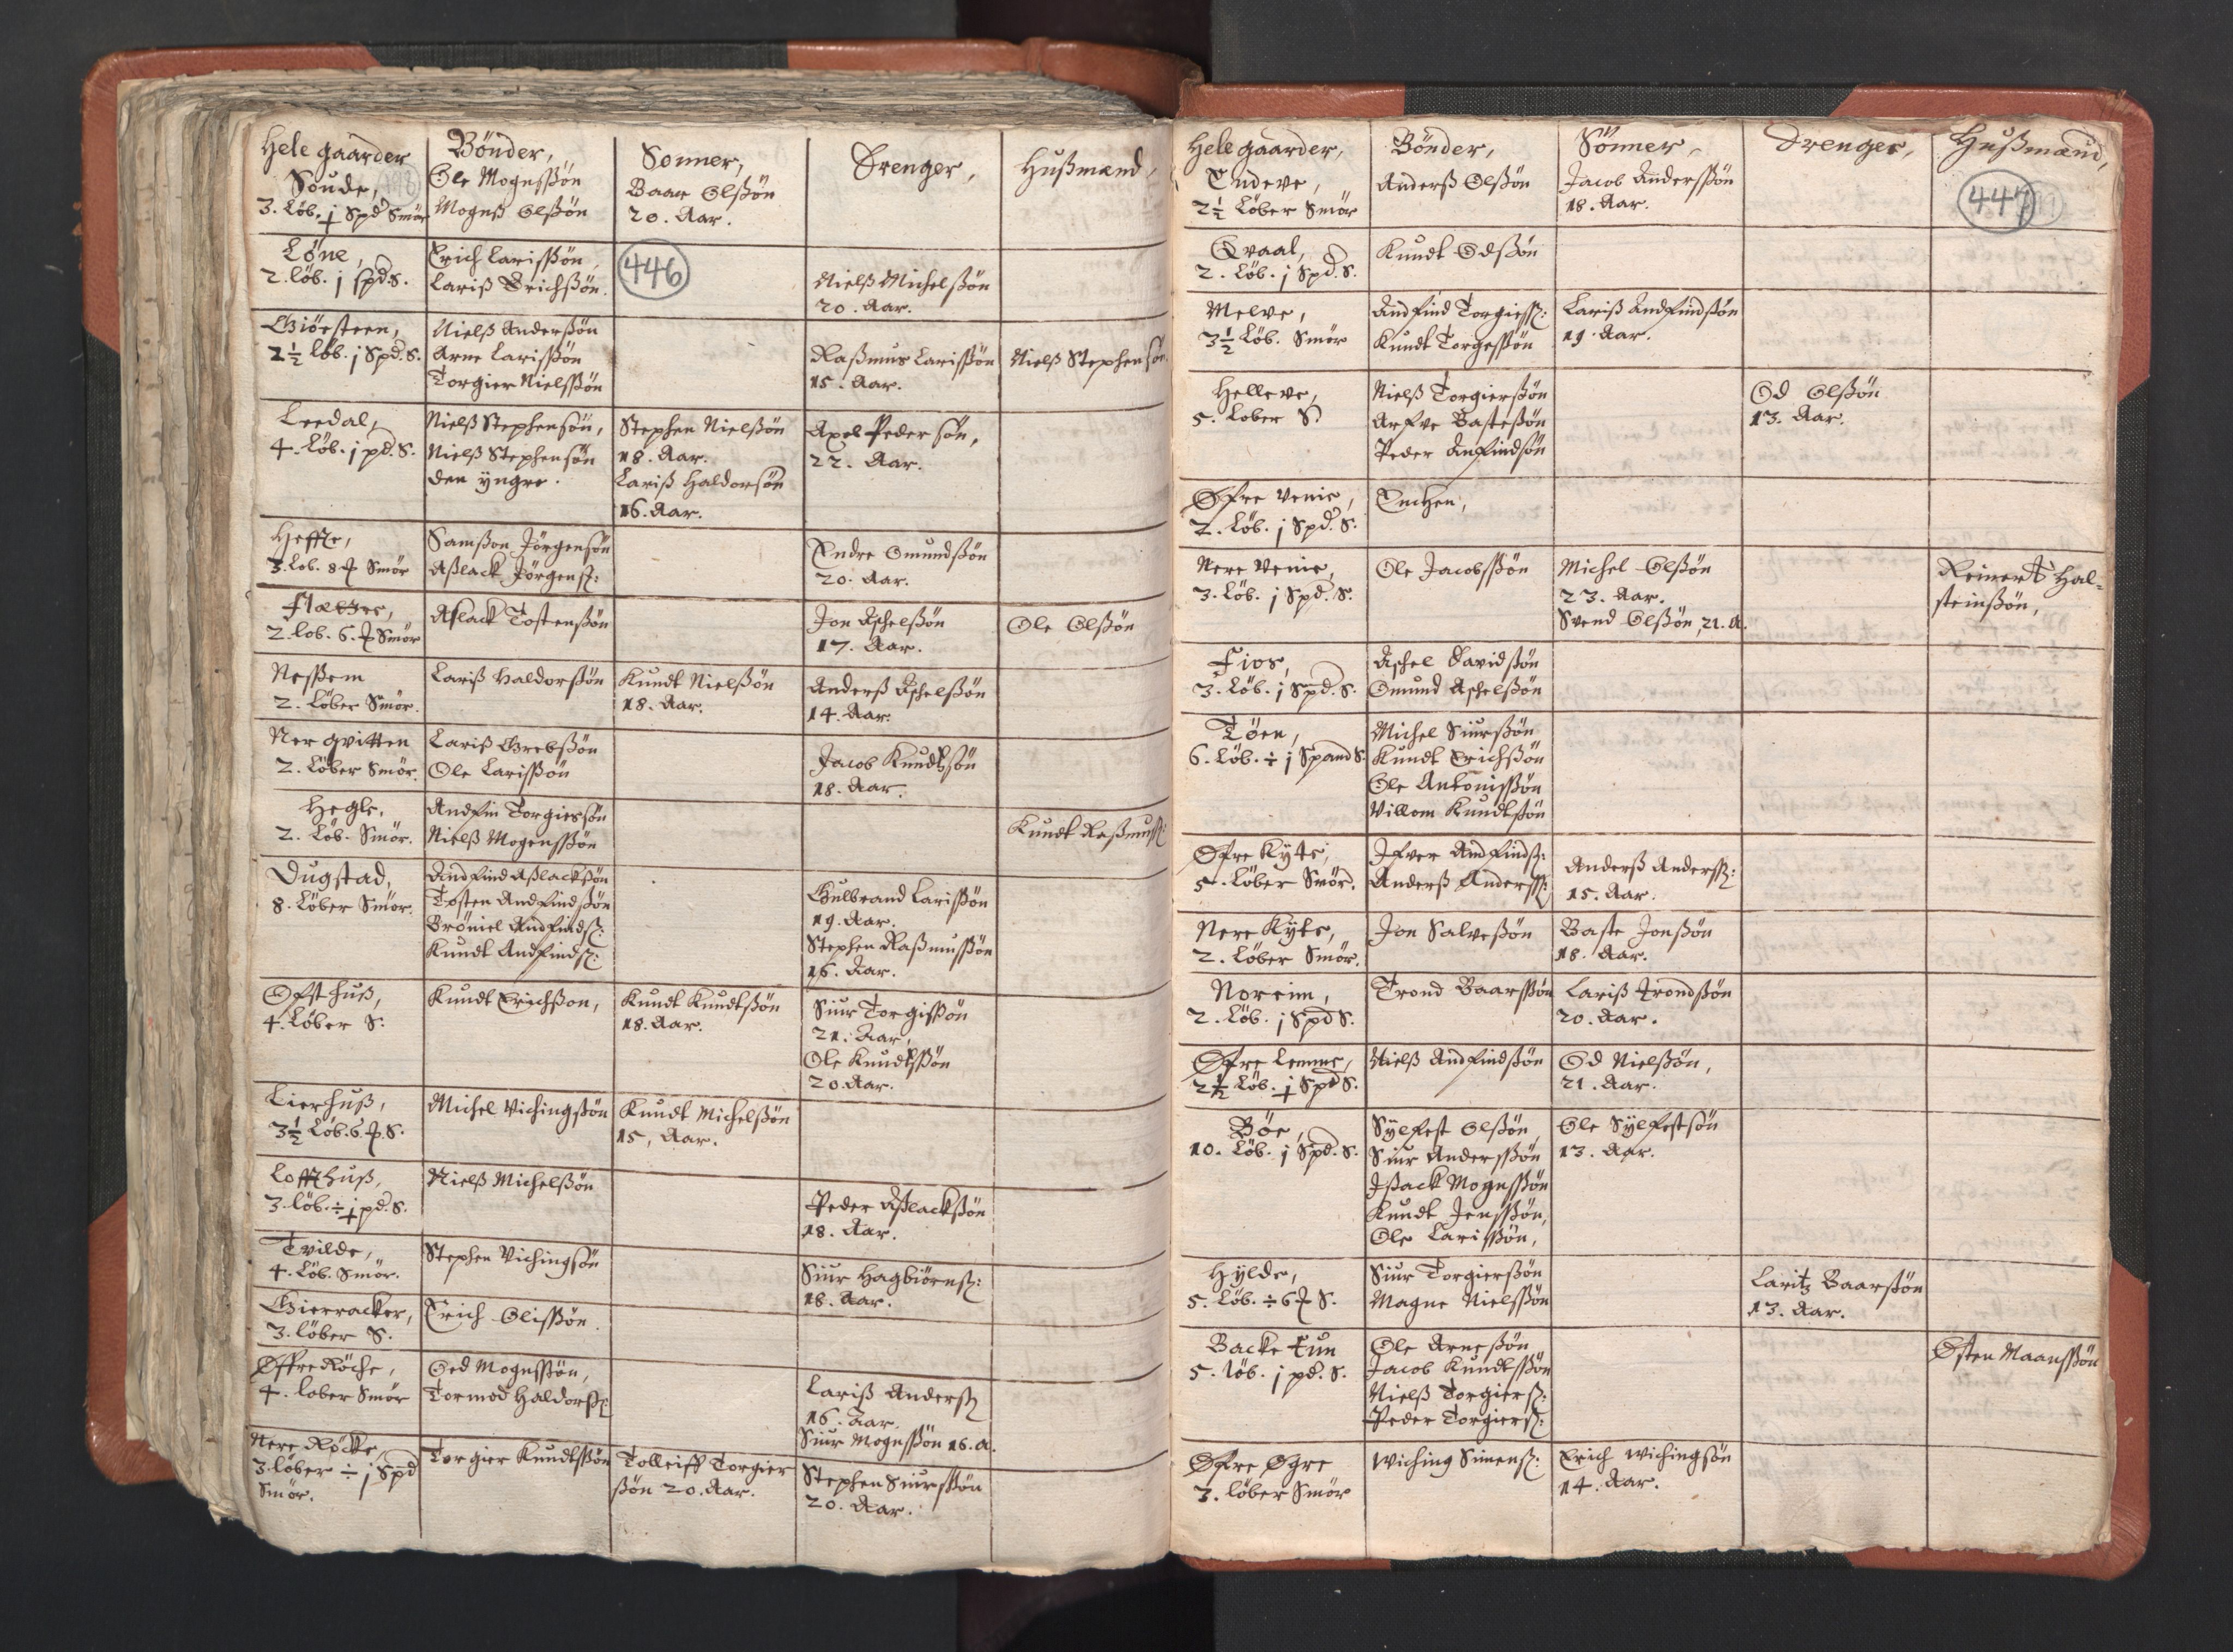 Hele gaarder
Bönder,
Sonner,
Drenger,
Hußmænd,
Soude,
3. Löb. j Spd Smör
Ole Mognssön
Mogns Olßön
Baar Olßön
20. Aar.
Löne,
2. löb. j spd. s.
Erich Larißön,
Lariß Erichßön.
446
Nielß Michelßön
20. Aar.
Giörsteen,
2½ löb. j Spd. S.
Nielß Anderßön
Arne Larißön
Torgier Nielßön
Raßmus Larißön
15. Aar.
Nielß Stephensön.
Leedal,
4. Löb. j pd. S.
Nielß Stephensön,
Nielß Stephensön
den yngre.
Stephen Nielßön
18. Aar.
Lariß Haldorsön
16. Aar.
Axel Pedersön,
22. Aar.
Heffle,
3. Löb. 8 ℔ Smör
Samßon Jörgensön
Aßlack Jörgenß:
Endre Omundßön
20. Aar.
Flatter,
2. löb. 6. ℔ Smör
Aslack Tostenßön
Jon Aschelßön
17. Aar.
Ole Olßön
Neßem
2. Löber Smör.
Lariß Haldorßön
Kundt Nielßön
18. Aar.
Anderß Aschelßön
14. Aar.
Ner qvitten
2. Löber Smör.
Lariß Grebßön
Ole Larißön
Jacob Kundtßön
18. Aar.
Hegle,
2. Löb. Smör.
Andfin Torgiersön
Nielß Mogenssön
Kundt Raßmusß:
Dugstad,
8. Löber Smör.
Andfind Aßlackßön
Tosten Andfindßön
Bröniel Andfindß:
Kundt Andfindß:
Gulbrand Larißön
19. Aar.
Stephen Raßmusßön
16. Aar.
Ofsthuß,
4. Löber S.
Kundt Erichßon,
Kundt Kundtßön
18. Aar.
Siur Torgißön
21. Aar,
Ole Knudtßön
20. Aar.
Lierhuß,
3½ Löb. 6. ℔. S.
Michel Vichingßön
Kundt Michelßön
15, Aar.
Loffthuß,
3. löb. ÷ j pd. S.
Nielß Michelßön
Peder Aßlackßön
18. Aar.
Tvilde,
4. Löb. Smör.
Stephen Vichingsön
Siur Hagbiörnß:
18. Aar.
Gierracker,
3. löber S.
Erich Olißön.
Øffre Röche,
4. lober Smör
Oed Mognssön,
Tormod Haldorß:
Lariß Anderß
16. Aar.
Siur Mognssön 16. A.
Nere Röcke
3. löber ÷ j Spd
Smör.
Torgier Kundtßön
Tolleiff Torgier
ßön 20. Aar.
Stephen Siurßön
20. Aar.
Hele gaarder,
Bönder,
Sönner,
Drenger,
Hußmænd,
447
Endeve,
2½ Löber Smör
Anderß Olßön
Jacob Andersßön
18. Aar.
Qvaal,
2. Löb. j Spd. S.
Kundt Odßön
Melve,
3½ Löb. Smör
Andfind Torgierß:
Kundt Torgersön
Lariß Andfindßön
19. Aar.
Helleve,
5. Lober S
Nielß Torgierßön
Arfve Basteßön
Peder Anfindßön
Od Olßön
13. Aar.
Øfre Venie,
2. Löb. j Spd. S.
Enchen,
Nere Venie,
3. Löb. j Spd. S.
Ole Jacobsßön
Michel Olßön
23. Aar.
Svend Olßön, 21. A.
Reinert Hal-
steinßön,
Fior,
3. Löb. j Spd. S.
Aschel Davidßön
Omund Aschelßön
Töen,
6. Löb. ÷ j Spand S.
Michel Siurßön
Kundt Erichßön
Ole Antonißön
Villom Kundtßön
Øfre Kyte,
5. Löber Smör.
Ifver Andfindß:
Anderß Andersß:
Anderß Andersß:
15. Aar.
Nere Kyte,
2. Löber Smör.
Jon Salveßön
Baste Jonßön
18. Aar.
Noreim,
2. Löb. j Spd S.
Trond Baarßön
Lariß Trondßön
20. Aar.
Øfre Lemme,
2½ Löb. j Spd S.
Nielß Andfindßön
Od Nielßön,
21. Aar.
Böe,
10. Löb. j Spd. S.
Sylfest Olßön
Siur Andersßön
Isack Mognssön
Kundt Jenßön,
Ole Larißön,
Ole Sylfestsön
13. Aar.
Hylde,
5. Löb. ÷ 6 ℔ S.
Siur Torgierßön
Magne Nielßön
Laritz Baarsön
13. Aar.
Backe tun
5. löb. j pd. S.
Ole Arneßön
Jacob Kundtßön
Nielß Torgierß:
Peder Torgierß:
Østen Maanßön
Øfre Øgre
3. löber Smör
Wiching Simenß:
Erich Wichingsön
14. Aar.